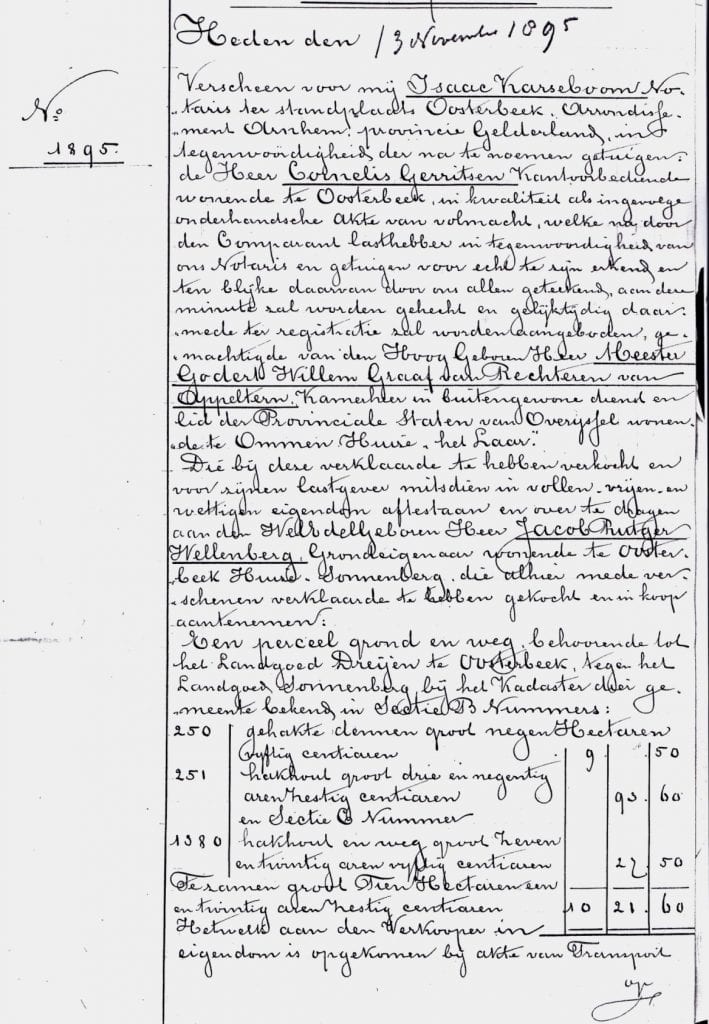 Heden den 13 November 1895
No:
1895.
Verscheen voor mij Isaac Karseboom No-
taris ter standplaats Oosterbeek. Arrondisse-
ment Arnhem. provincie Gelderland, in
tegenwoordigheid der na te noemen getuigen:
de Heer Cornelis Gerritsen Kantoorbediende
wonende te Oosterbeek, in kwaliteit als ingevolge
onderhandsche akte van volmacht, welke na, door
den Comparant lasthebber in tegenwoordigheid van
ons Notaris en getuigen voor echt te zijn erkend en
ten blijke daarvan door ons allen geteekend, aan deze
minute zal worden gehecht en gelijktijdig daar-
mede ter registratie zal worden aangeboden, ge-
machtigde van den Hoog Geboren Heer Meester
Godert Willem Graaf van Rechteren van
Appeltern. Kamerheer in buitengewone dienst en
lid der Provinciale Staten van Overijssel wonen-
de te Ommen Huize "het Laar."
Die bij deze verklaarde te hebben verkocht en
voor zijnen lastgever mitsdien in vollen vrijen en
wettigen eigendom aftestaan en over te dragen
aan den WelEdelGeboren Heer Jacob Rutger
Wellenberg, Grondeigenaar wonende te Ooster-
beek Huize Sonnenberg, die alhier mede ver-
schenen verklaarde te hebben gekocht en in koop
aantenemen:
Een perceel grond en weg, behoorende tot
het Landgoed Dreijen te Oosterbeek, tegen het
Landgoed Sonnenberg, bij het Kadaster dier ge-
meente bekend in Sectie B Nummers:
250 gehakte dennen groot negen Hectaren
vijftig centiaren 9 50
251 hakhout groot drie en negentig
aren zestig centiaren 93. 60
en Sectie C Nummer
1380 hakhout en weg groot zeven
en twintig aren vijftig centiaren 27 50
Te zamen groot Tien Hectaren een
en twintig aren zestig centiaren 10 21. 60
Hetwelk aan den Verkooper in
eigendom is opgekomen bij akte van Transport
op